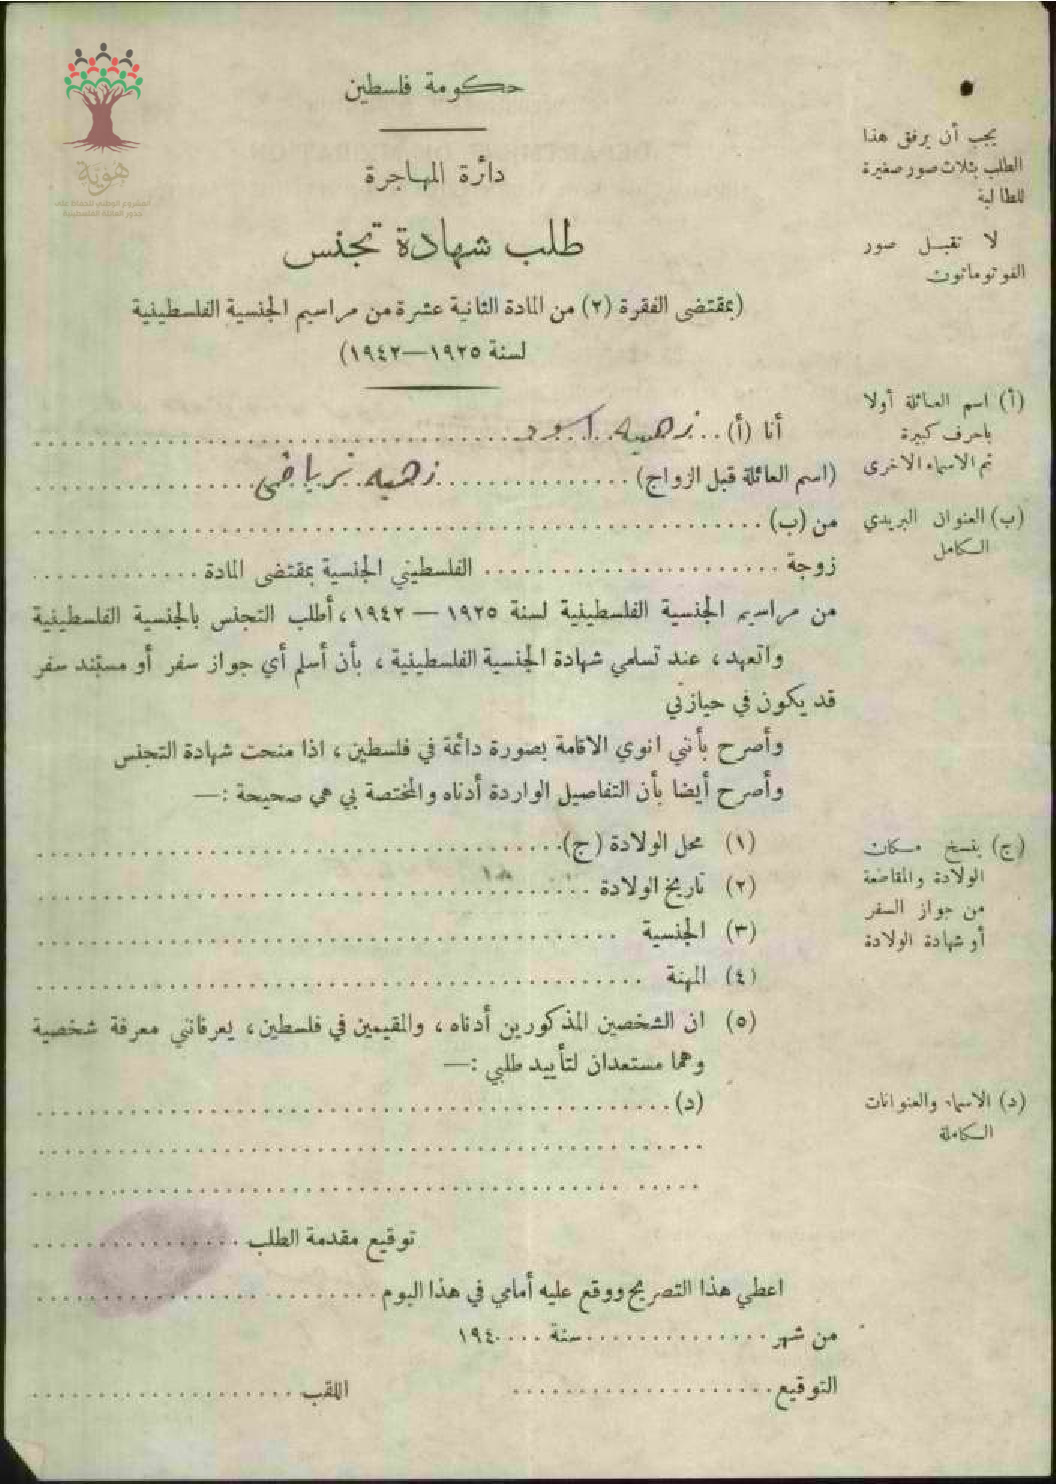 هوية
المشروع الوطني للحفاظ على
جذور العائلة الفلسطينية
حكومة فلسطين
دائرة المهاجرة
طلب شهادة تجنس
(بمقتضى الفقرة (٢) من المادة الثانية عشرة من مراسيم الجنسية الفلسطينية
لسنة ١٩٢٥—١٩٤٢)
يجب أن يرفق هذا
الطلب بثلاث صور صغيرة
للطالبة
لا تقبل صور
الفوتوماتون
أنا (أ) .. زهيه اسود
(اسم العائلة قبل الزواج) زهيه
من (ب)
زوجة ........ الفلسطيني الجنسية بمقتضى المادة ........
من مراسيم الجنسية الفلسطينية لسنة ١٩٢٥ — ١٩٤٢، أطلب التجنس بالجنسية الفلسطينية
واتعهد، عند تسلمي شهادة الجنسية الفلسطينية، بأن أسلم أي جواز سفر أو مستند سفر
قد يكون في حيازتي
وأصرح بأنني انوي الاقامة بصورة دائمة في فلسطين، اذا منحت شهادة التجنس
وأصرح أيضا بأن التفاصيل الواردة أدناه والمختصة بي هي صحيحة :—
(١) محل الولادة (ج)
(٢) تاريخ الولادة
(٣) الجنسية
(٤) المهنة
(٥) ان الشخصين المذكورين أدناه، والمقيمين في فلسطين، يعرفانني معرفة شخصية
وهما مستعدان لتأييد طلبي :—
(د)
توقيع مقدمة الطلب
اعطي هذا التصريح ووقع عليه أمامي في هذا اليوم
من شهر ........ سنة .... ١٩٤
التوقيع ........ اللقب ........
(أ) اسم العائلة أولا
باحرف كبيرة
ثم الاسماء الاخرى
(ب) العنوان البريدي
الكامل
(ج) ينسخ مكان
الولادة والمقاطعة
من جواز السفر
أو شهادة الولادة
(د) الاسماء والعنوانات
الكاملة